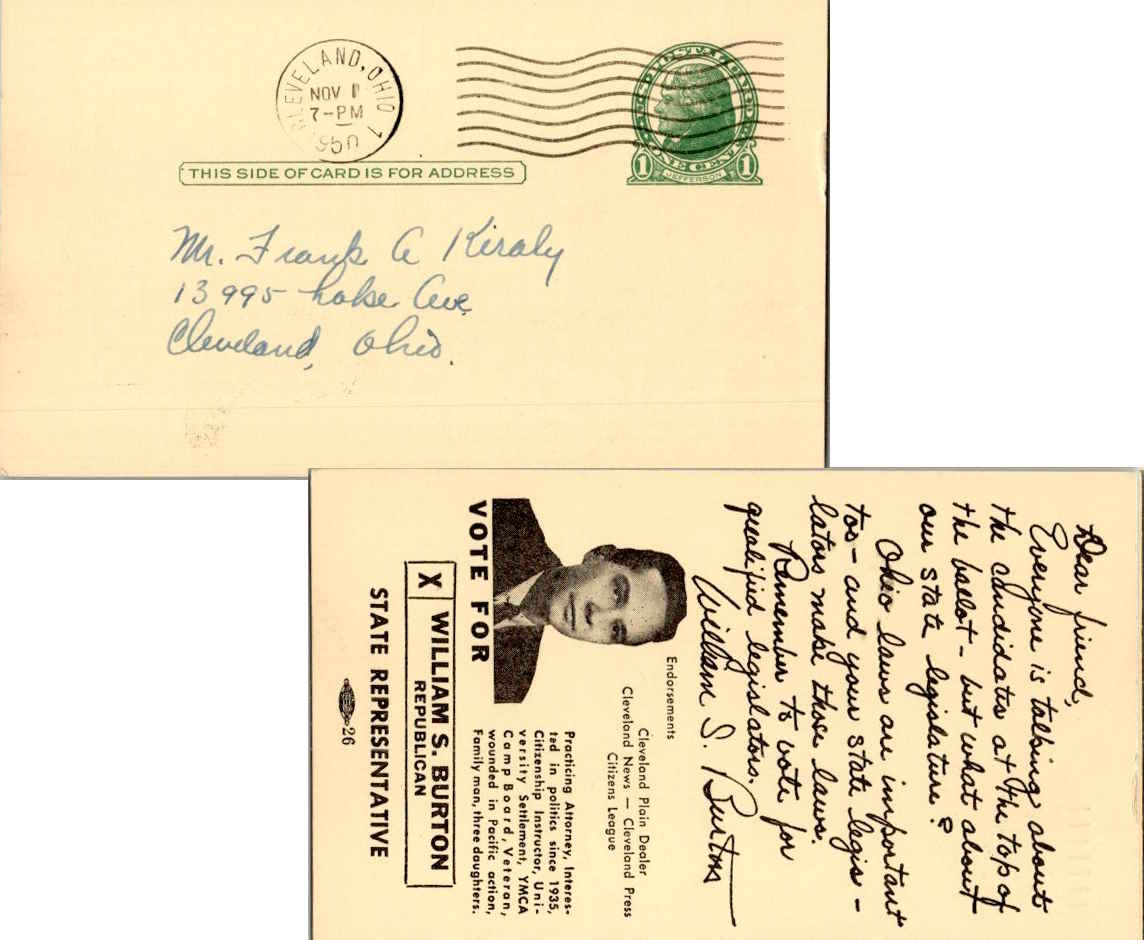 CLEVELAND, OHIO 1
NOV 1
7-PM
1950
U.S. POSTAL CARD
ONE CENT
1 JEFFERSON 1
THIS SIDE OF CARD IS FOR ADDRESS
Mr. Frank A Kiraly
13995 Lake Ave
Cleveland, Ohio.
Dear friend,
Everyone is talking about
the candidates at the top of
the ballot - but what about
our state legislature?
Ohio laws are important
too - and your state legis-
lators make those laws.
Remember to vote for
qualified legislators.
William S. Burton
Endorsements
Cleveland Plain Dealer
Cleveland News — Cleveland Press
Citizens League
Practicing Attorney, Interes-
ted in politics since 1935,
Citizenship Instructor, Uni-
versity Settlement, YMCA
Camp Board, Veteran,
wounded in Pacific action,
Family man, three daughters.
VOTE FOR
X WILLIAM S. BURTON
REPUBLICAN
STATE REPRESENTATIVE
26